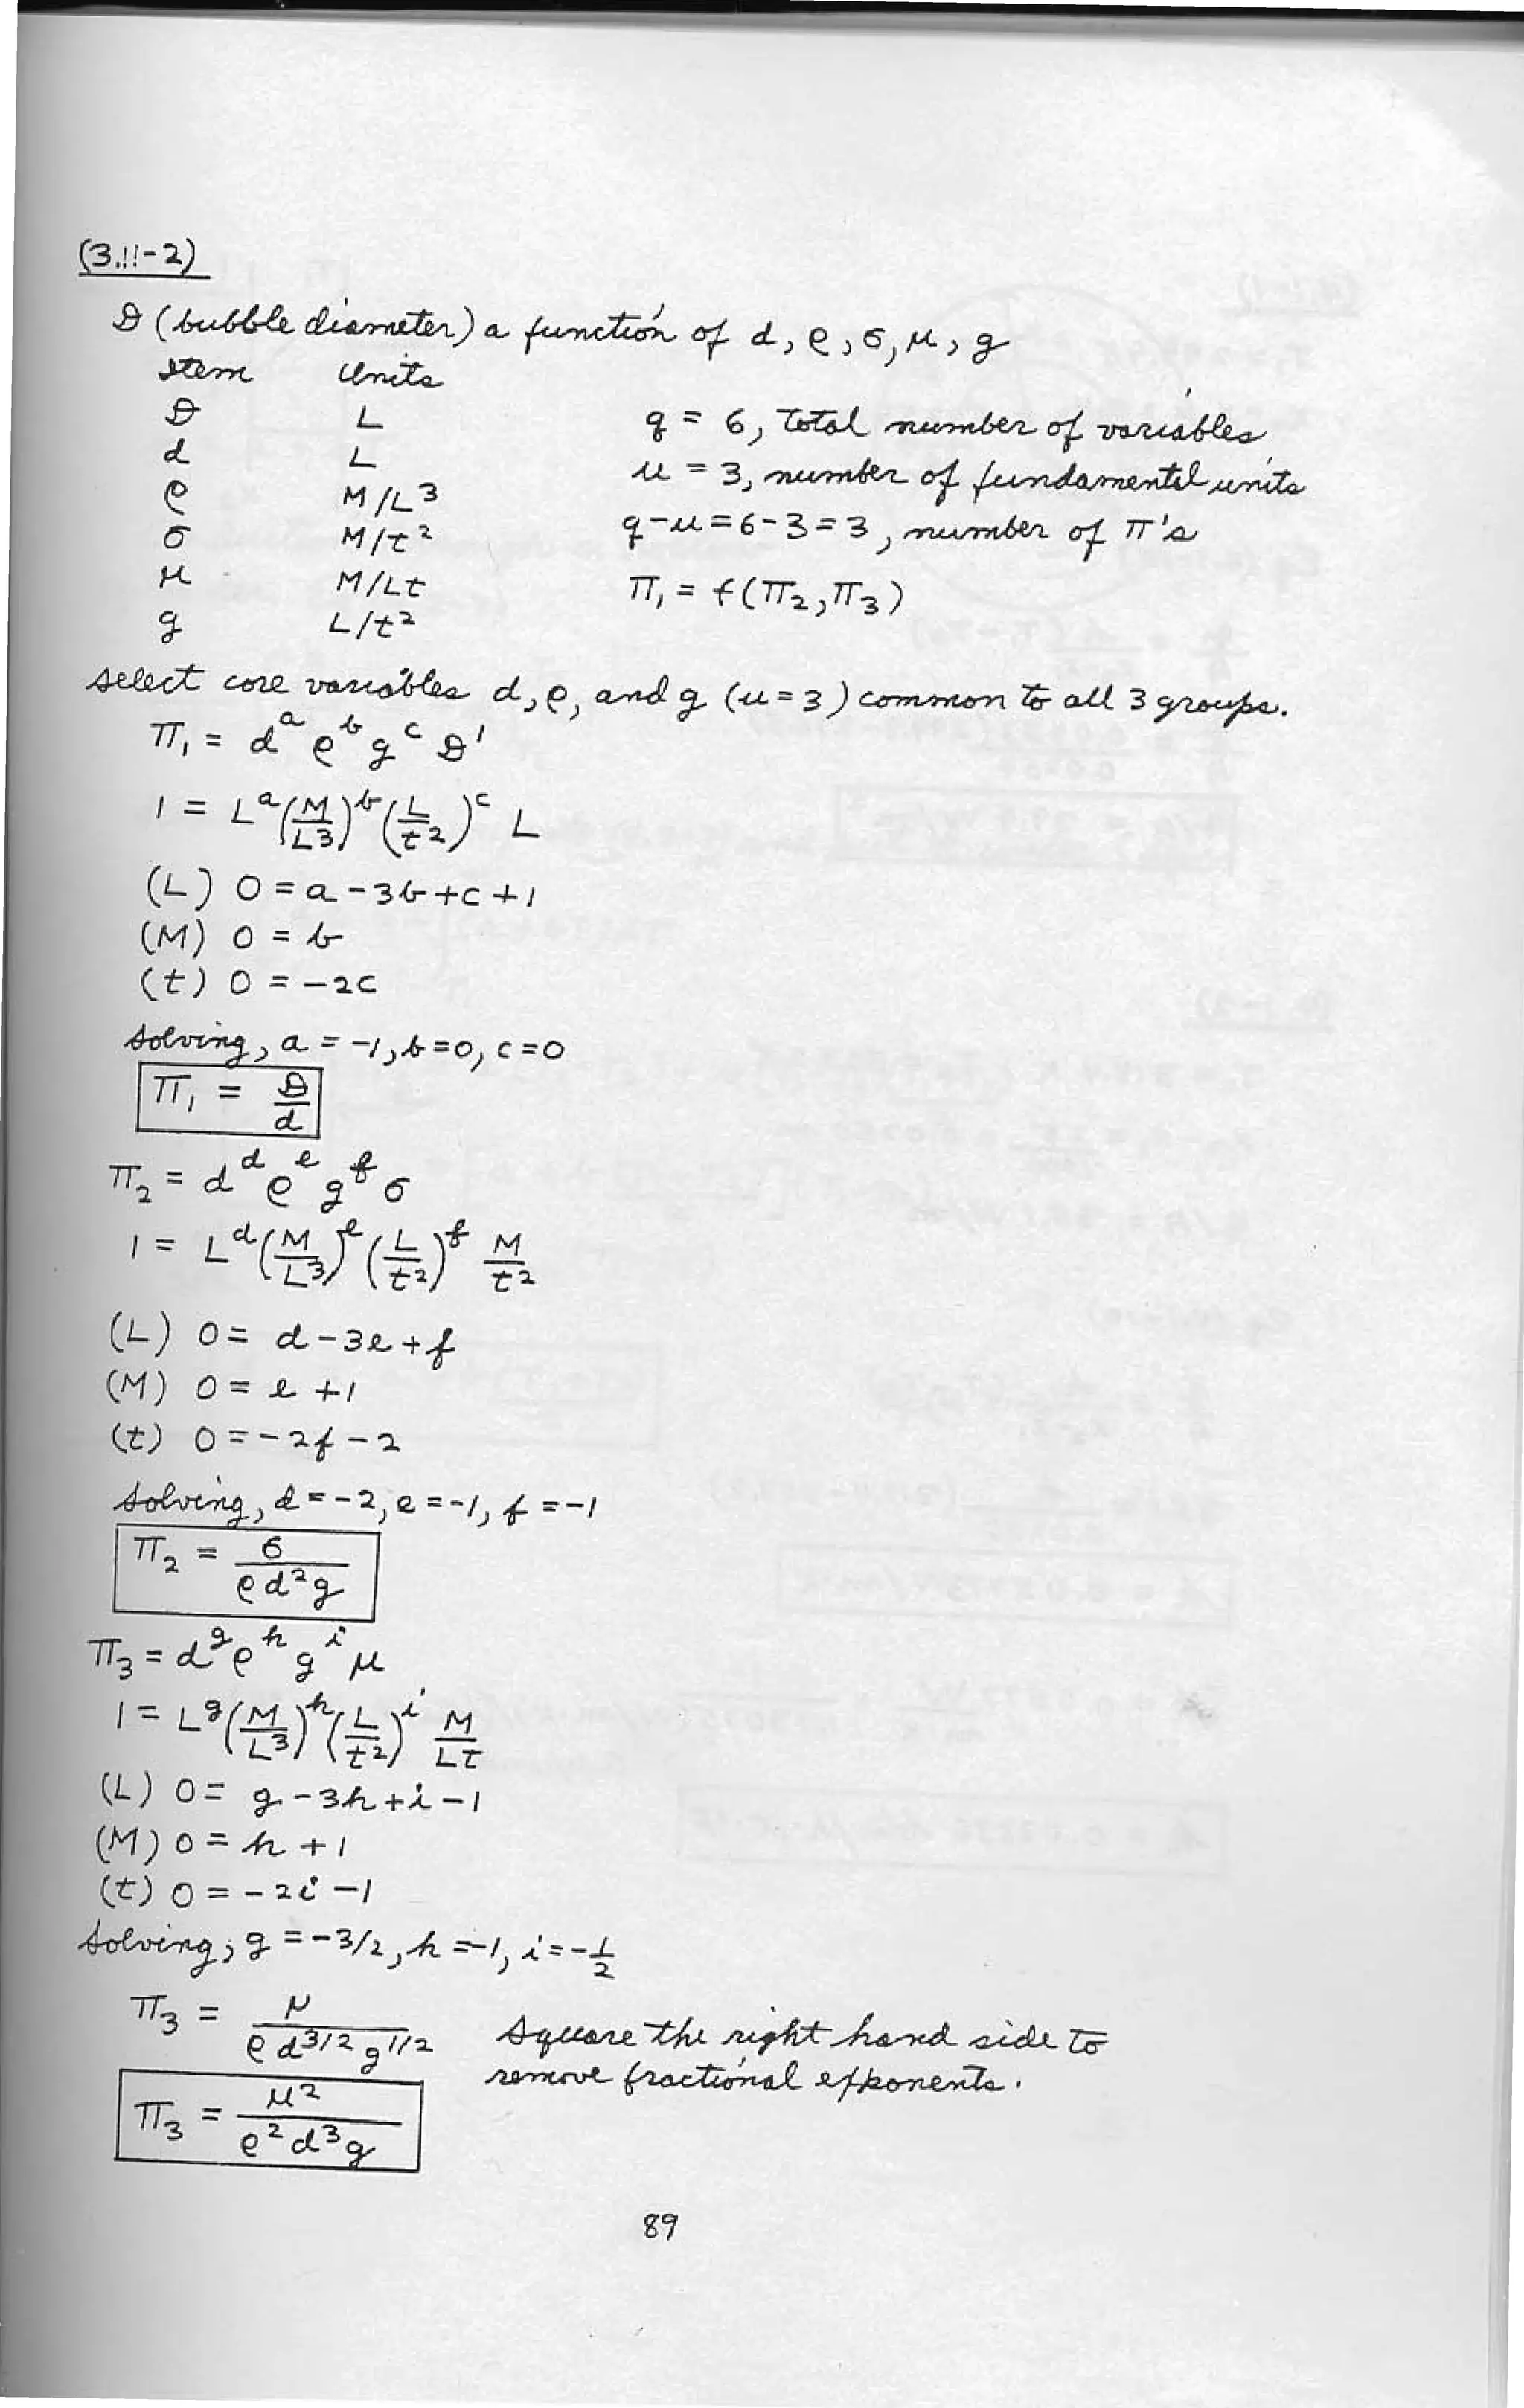 (3.11-2)
D (bubble diameter) a function of d, ρ, σ, μ, g
Item Units
D L q = 6, total number of variables
d L u = 3, number of fundamental units
ρ M/L³
σ M/t² q-u=6-3=3, number of π's
μ M/Lt π₁ = f(π₂,π₃)
g L/t²
select core variables d, ρ, and g (u=3) common to all 3 groups.
π₁ = d^a ρ^b g^c D^1
1 = L^a (M/L³)^b (L/t²)^c L
(L) 0 = a - 3b + c + 1
(M) 0 = b
(t) 0 = -2c
solving, a = -1, b=0, c=0
π₁ = D/d
π₂ = d^d ρ^e g^f σ
1 = L^d (M/L³)^e (L/t²)^f M/t²
(L) 0 = d - 3e + f
(M) 0 = e + 1
(t) 0 = -2f - 2
solving, d = -2, e = -1, f = -1
π₂ = σ/ρd²g
π₃ = d^g ρ^h g^i μ
1 = L^g (M/L³)^h (L/t²)^i M/Lt
(L) 0 = g - 3h + i - 1
(M) 0 = h + 1
(t) 0 = -2i - 1
solving, g = -3/2, h = -1, i = -1/2
π₃ = μ/ρd^3/2 g^1/2 square the right hand side to
remove fractional exponents.
π₃ = μ²/ρ²d³g
89